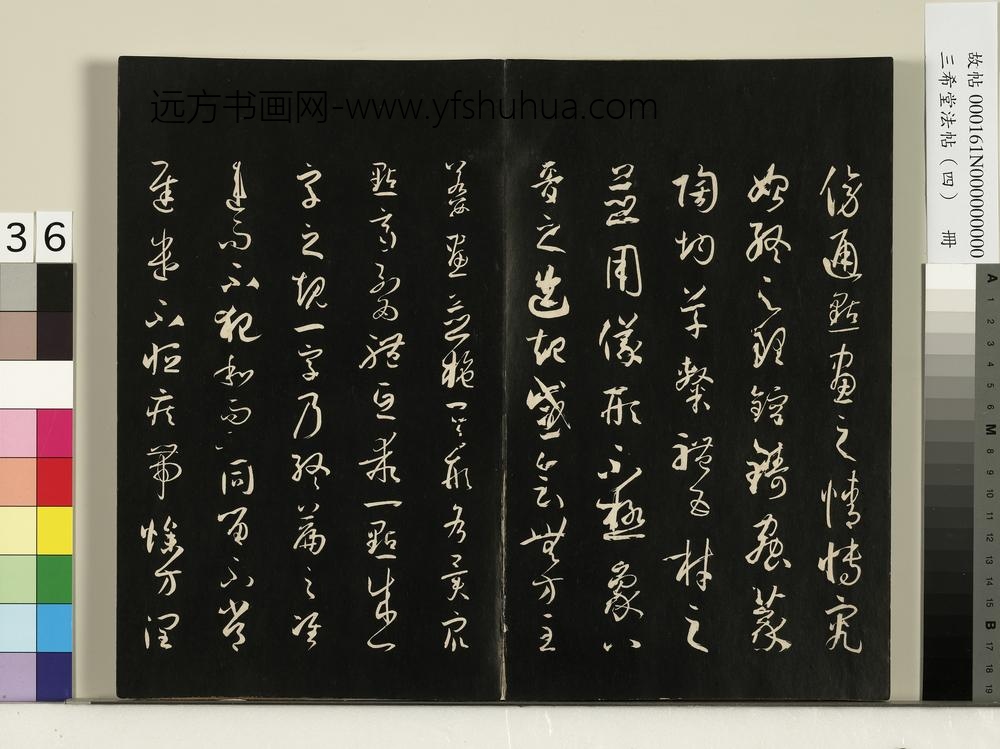 远方书画网-www.yfshuhua.com
傍通點畫之情博究
始終之理鎔鑄蟲篆
陶均草隸體五材之
並用儀形不極象八
音之迭起感會無方至
若數畫並施其形各異眾
點齊列為體互乖一點成一
字之規一字乃終篇之准
違而不犯和而不同留不常
遲遣不恒疾帶燥方潤
故帖 000161N000000000
三希堂法帖(四) 冊
36
A 1 2 3 4 5 6 M 8 9 10 11 12 13 14 15 B 17 18 19